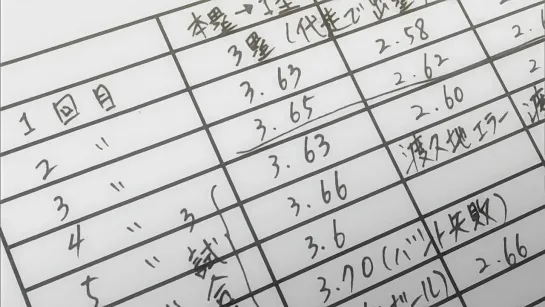 本塁→1塁
3塁(代走で出塁)
1回目 3.63 2.58
2 〃 3.65 2.62
3 〃 3.63 2.60
4 〃 3.66 渡久地エラー
5 〃 3.6
3試合
3.70(バント失敗)
2.66